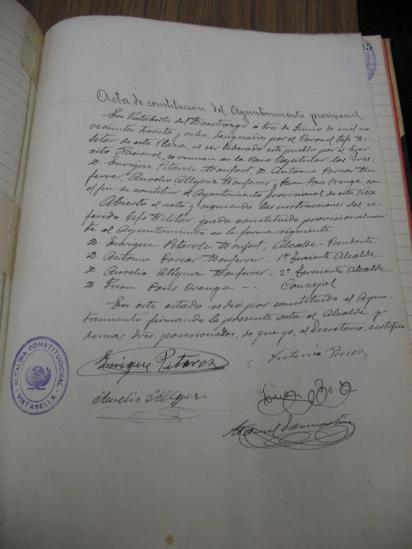 Acta de constitución del Ayuntamiento provisional
En Vistabella del Maestrazgo a tres de Junio de mil no-
vecientos treinta y ocho, designados por el Coronel Jefe Mi-
litar de esta Plaza, al ser liberado este pueblo por el Ejér-
cito Nacional, se reunen en la Casa Capitular los Sres.
D. Enrique Pitarch Monfort, D. Antonio Porcar Mon-
ferrer, Aurelio Allepuz Monferrer y Juan Pons Orenga, con
el fin de constituir el Ayuntamiento provisional de esta Villa.
Abierto el acto y siguiendo las instrucciones del re-
ferido Jefe Militar, queda constituido provisionalmen-
te el Ayuntamiento en la forma siguiente
D. Enrique Pitarch Monfort, Alcalde-Presidente
D. Antonio Porcar Monferrer, 1er Teniente Alcalde
D. Aurelio Allepuz Monferrer, 2º Teniente Alcalde
D. Juan Pons Orenga -- Concejal
En este estado se dió por constituido el Ayun-
tamiento firmando la presente acta el Alcalde y
demas Sres. posesionados, de que yo, el Secretario, certifico
Enrique Pitarch Antonio Porcar
Aurelio Allepuz Juan Pons
ALCALDIA CONSTITUCIONAL
VISTABELLA